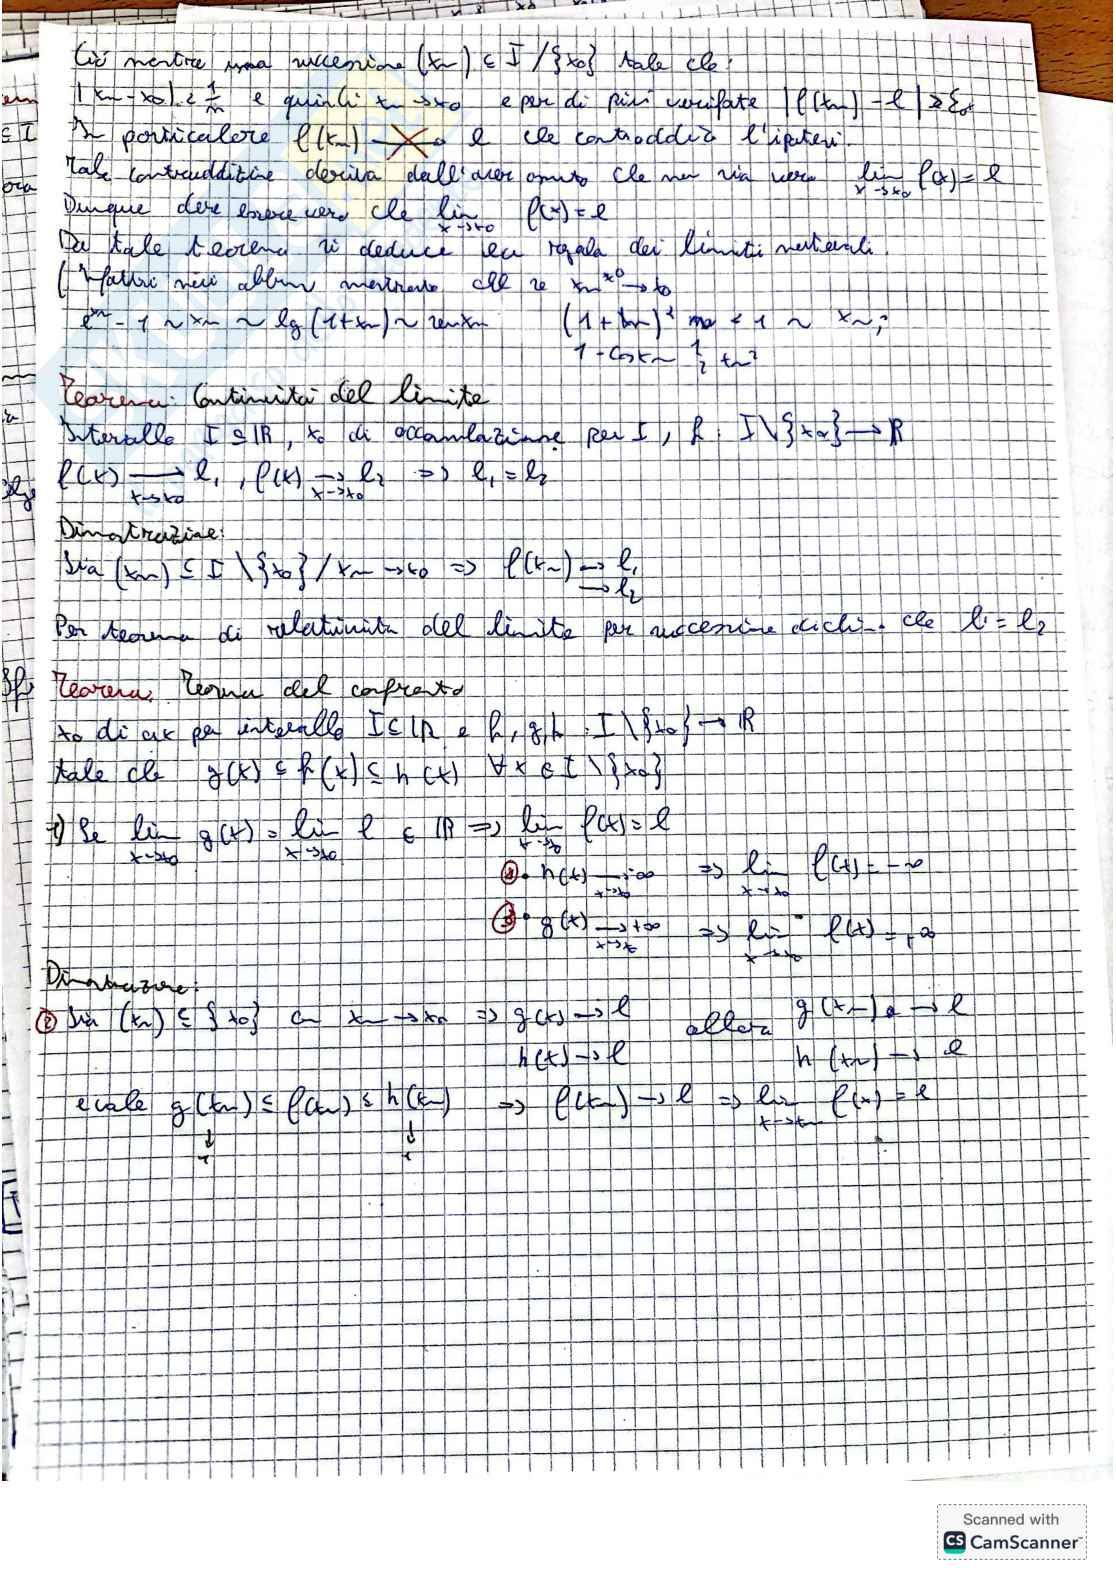 Ciò mentre una successione (xn) ⊆ I / {x0} tale che:
|xn - x0| < 1/n e quindi xn → x0 e per di più verifate |f(xn) - l| ≥ ε0
In particolare f(xn) → l che contraddice l'ipotesi.
Tale contraddizine deriva dall'aver che non sia vero lim x→x0 f(x) = l
Dunque deve essere vero che lim x→x0 f(x) = l
Da tale teorema si deduce la regola dei limiti notevoli.
(Infatti noi abbiam mostrato che se xn → x0
e^xn - 1 ~ xn ~ lg (1+xn) ~ senxn (1+xn) - 1 ~ xn;
1 - cosxn ~ 1/2 xn²
Teorema: Continuità del limite
Intervallo I ⊆ ℝ, x0 di accumulazione per I, f: I \ {x0} → ℝ
f(x) → x→x0 l1, f(x) → x→x0 l2 => l1 = l2
Dimostrazine:
Sia (xn) ⊆ I \ {x0} / xn → x0 => f(xn) → l1
→ l2
Per teorema di del limite per successine che l1 = l2
Teorema. Teorema del confronto
x0 di acc per intervallo I ⊆ ℝ e f, g, h : I \ {x0} → ℝ
tale che g(x) ≤ f(x) ≤ h(x) ∀x ∈ I \ {x0}
1) Se lim x→x0 g(x) = lim x→x0 l ∈ ℝ => lim x→x0 f(x) = l
• h(x) → x→x0 -∞ => lim x→x0 f(x) = -∞
③ • g(x) → x→x0 +∞ => lim x→x0 f(x) = +∞
Dimostrazione:
② Sia (xn) ⊆ {x0} con xn → x0 => g(x) → l allora g(xn) → l
h(x) → l h(xn) → l
e vale g(xn) ≤ f(xn) ≤ h(xn) => f(xn) → l => lim x→xn f(x) = l
↓ ↓
Scanned with
CS CamScanner